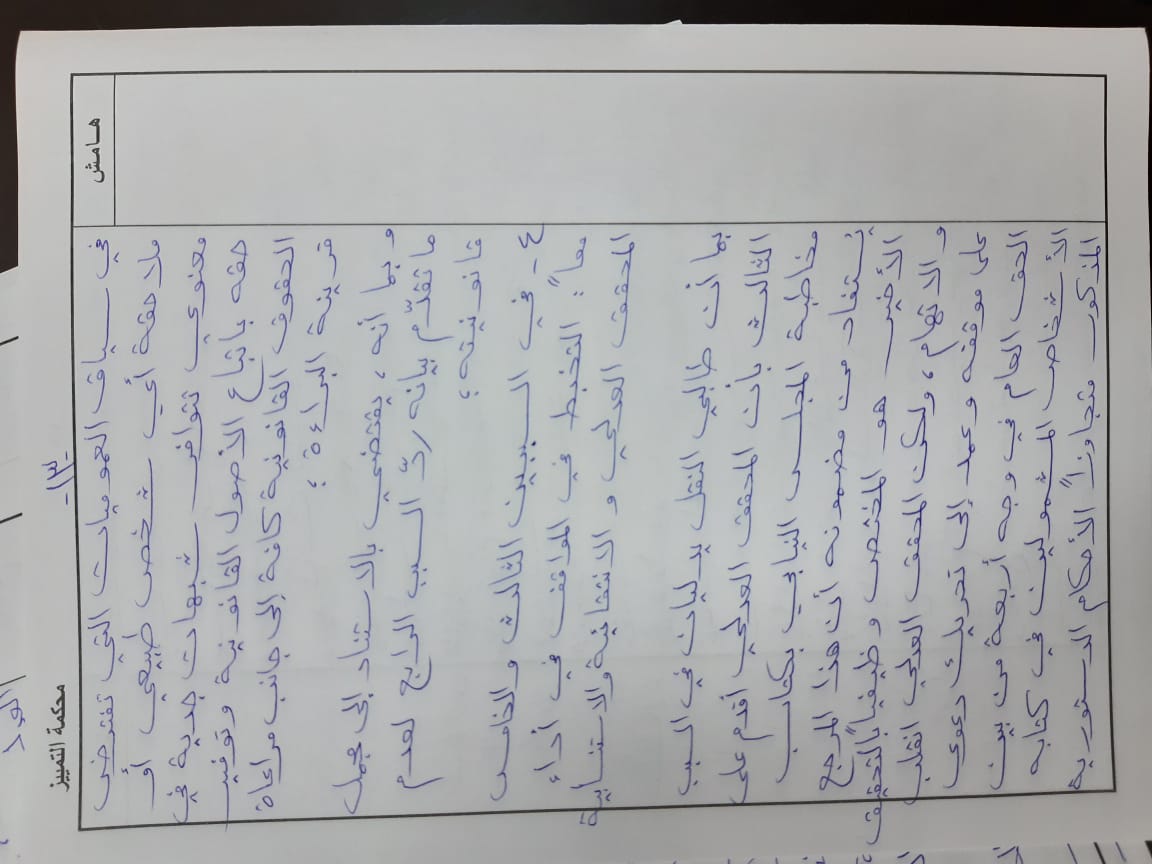 محكمة التمييز
-١٣-
هامش
في سياق العموميات التي تفترض
ملاحقة أي شخص طبيعي أو
معنوي تتوافر شبهات جدية في
حقه باتباع الأصول القانونية وتوفير
الحقوق القانونية كافة إلى جانب مراعاة
قرينة البراءة ؛
وبما أنه ، يقتضي بالاستناد إلى مجمل
ما تقدّم بيانه ردّ السبب الرابع لعدم
قانونيته ؛
٤ - في السببين الثالث والخامس
معاً : التخبط في المواقف في أداء
المحقق العدلي والانتقائية والاستنسابية
بما أن طالبي النقل يدليان في السبب
الثالث بأن المحقق العدلي أقدم على
مخاطبة المجلس النيابي بكتاب
يُستفاد من مضمونه أن هذا المرجع
الأخير هو المختص وظيفياً بالتحقيق
والاتهام ، ولكن المحقق العدلي انقلب
على موقفه وعمد إلى تحريك دعوى
الحق العام في وجه أربعة من بين
الأشخاص المشمولين في كتابه
المذكور متجاوزاً الأحكام الدستورية